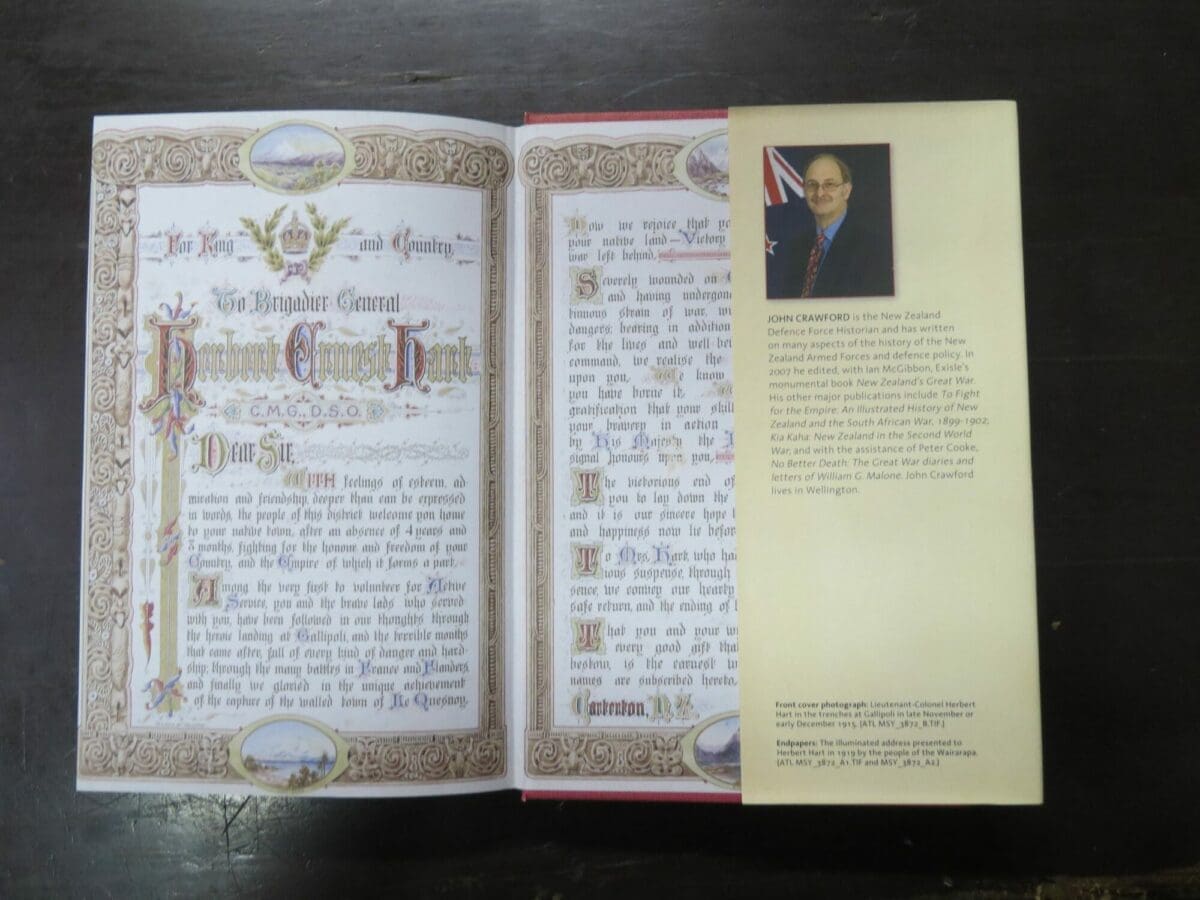 For King and Country,
To Brigadier General
Herbert Ernest Hart
C.M.G., D.S.O.
Dear Sir,
WITH feelings of esteem, ad
miration and friendship deeper than can be expressed
in words, the people of this district welcome you home
to your native town, after an absence of 4 years and
8 months, fighting for the honour and freedom of your
Country, and the Empire of which it forms a part.
Among the very first to volunteer for Active
Service, you and the brave lads who served
with you, have been followed in our thoughts through
the heroic landing at Gallipoli, and the terrible months
that came after, full of every kind of danger and hard-
ship; through the many battles in France and Flanders,
and finally we gloried in the unique achievement
of the capture of the walled town of Le Quesnoy.
Now we rejoice that
your native land—Victory
war left behind,
Severely wounded on
and having undergon
tinuous strain of war, wi
dangers; bearing in addition
for the lives and well-bei
command, we realise the
upon you, We know
you have borne it,
gratification that your skill
your bravery in action
by His Majesty the
signal honours upon you,
The victorious end of
you to lay down the
and it is our sincere hope t
and happiness now lie befor
To Mrs. Hart, who ha
ious suspense, through
sence, we convey our hearty
safe return, and the ending of
That you and your w
every good gift tha
bestow, is the earnest w
names are subscribed hereto,
Carterton, N.Z.
JOHN CRAWFORD is the New Zealand
Defence Force Historian and has written
on many aspects of the history of the New
Zealand Armed Forces and defence policy. In
2007 he edited, with Ian McGibbon, Exisle's
monumental book New Zealand's Great War.
His other major publications include To Fight
for the Empire: An Illustrated History of New
Zealand and the South African War, 1899-1902;
Kia Kaha: New Zealand in the Second World
War, and with the assistance of Peter Cooke,
No Better Death: The Great War diaries and
letters of William G. Malone. John Crawford
lives in Wellington.
Front cover photograph: Lieutenant-Colonel Herbert
Hart in the trenches at Gallipoli in late November or
early December 1915. (ATL MSY_3872_8.TIF.)
Endpapers: The illuminated address presented to
Herbert Hart in 1919 by the people of the Wairarapa.
(ATL MSY_3872_A1.TIF and MSY_3872_A2.)